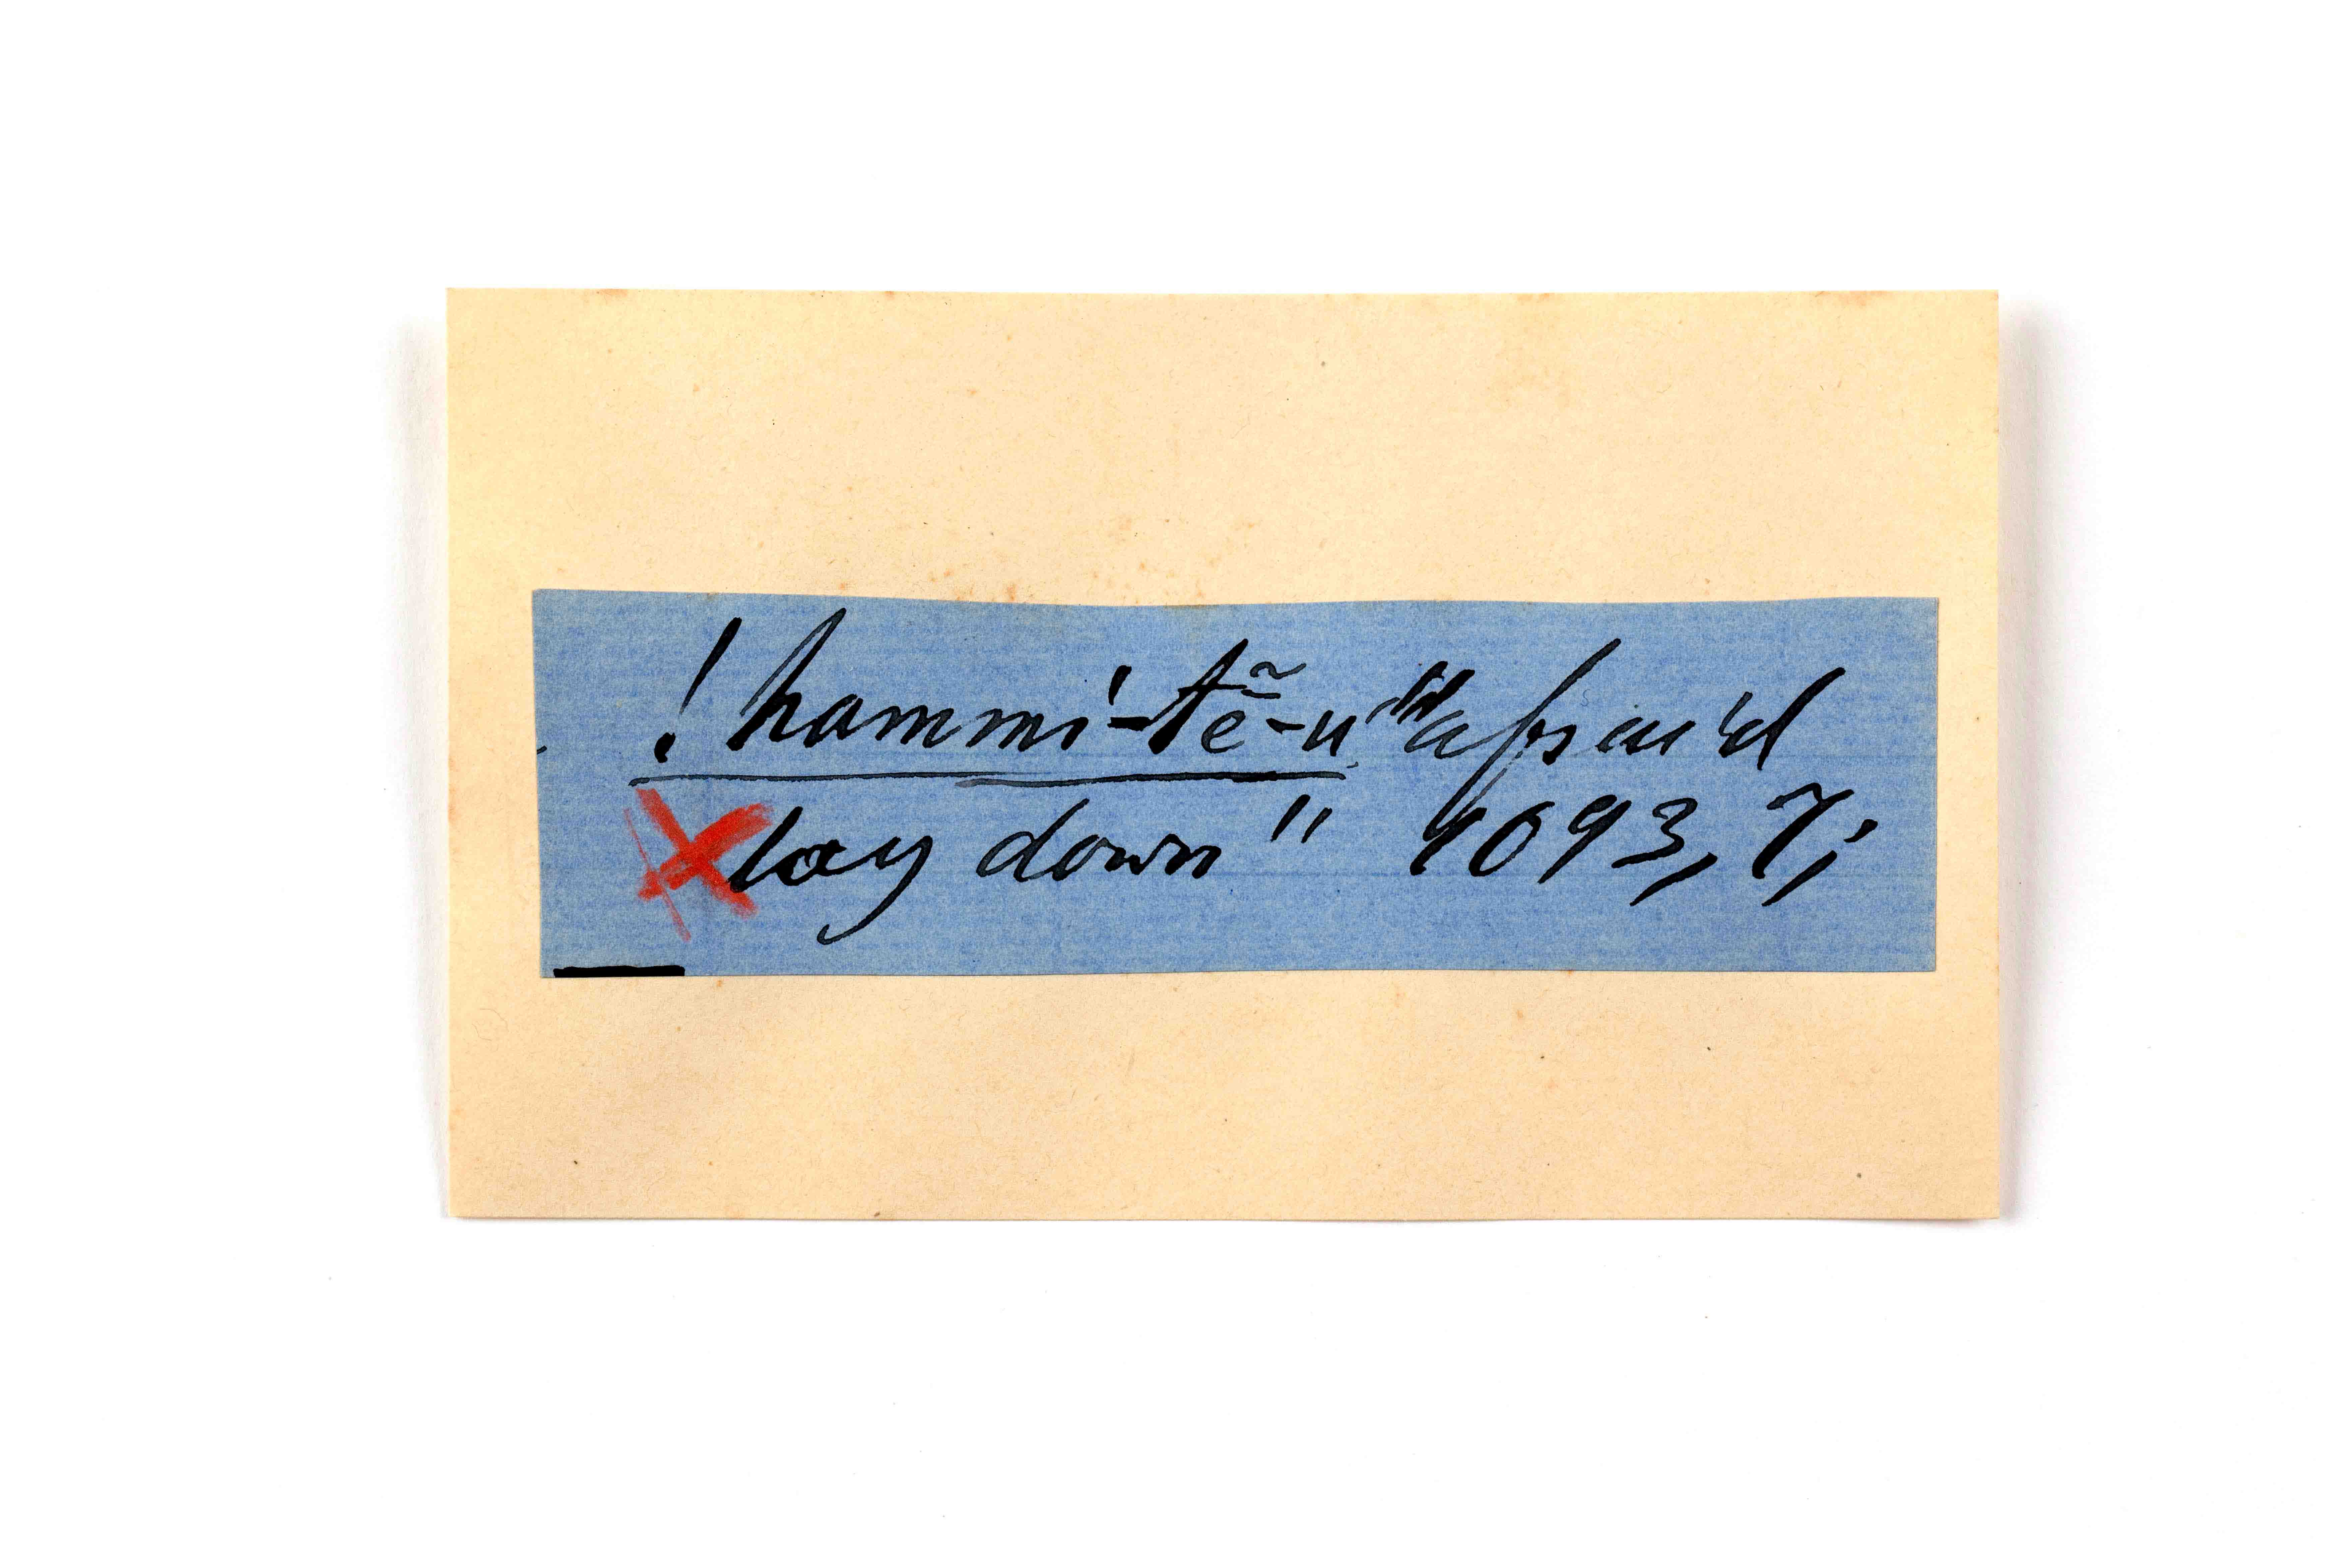 ! hammi'-tẽ̱-u "afraid
lay down" 1093, 7;